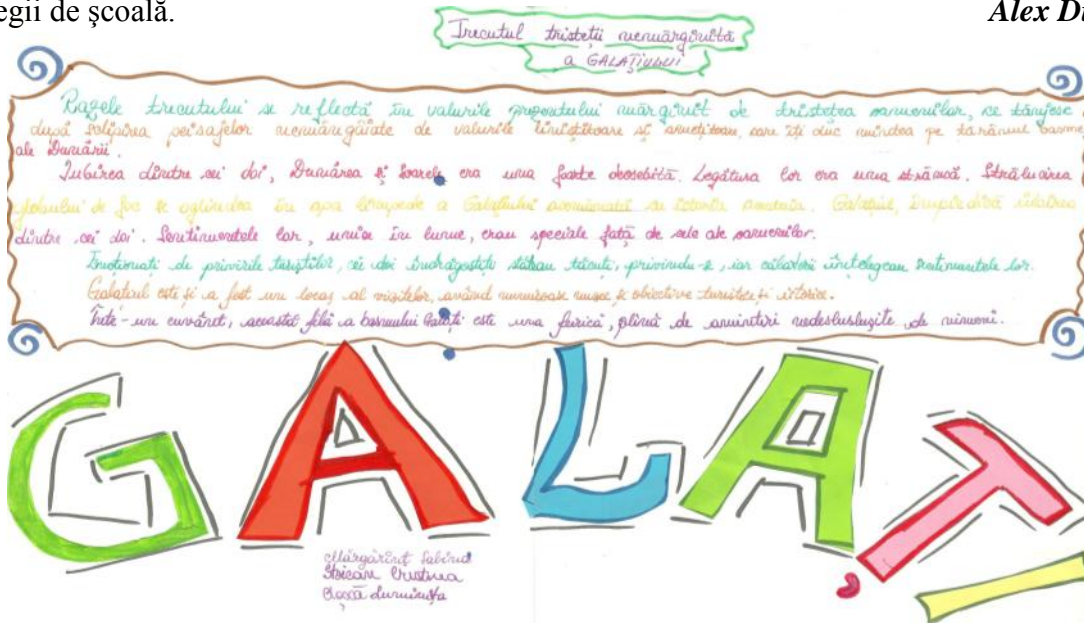 egii de şcoală.
Alex Di
Trecutul tristeții nemărginită
a GALAȚIULUI
Razele trecutului se reflectă în valurile prezentului mărginit de tristețea oamenilor, ce tânjesc
după sclipirea peisajelor nemângâiate de valurile liniștitoare și amețitoare, care îți duc mintea pe tărâmul basme
ale Dunării.
Iubirea dintre cei doi, Dunărea și Soarele era una foarte deosebită. Legătura lor era una strânsă. Strălucirea
globului de foc se oglindea în apa limpede a Galațiului
dintre cei doi. Sentimentele lor, unice în lume, erau speciale față de cele ale oamenilor.
Emoționați de privirile turiștilor, cei doi îndrăgostiți stăteau tăcuți, privindu-se, iar călătorii înțelegeau sentimentele lor.
Galațiul este și a fost un locaș al vizitelor, având numeroase muzee și obiective turistice și istorice.
Într-un cuvânt, această filă a basmului Galați este una feerică, plină de amintiri nedeslușite de nimeni.
GALAȚI
Mărgărint Sabina
Stoican Cristina
Luminița